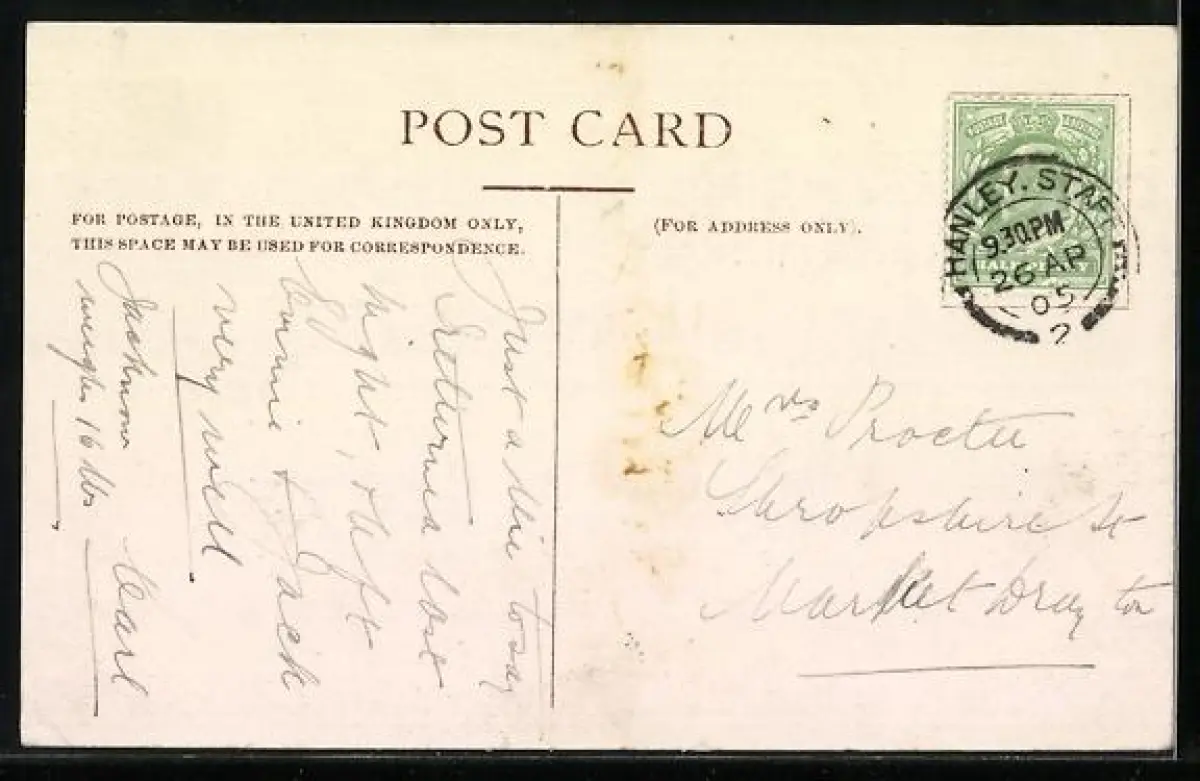 POST CARD
FOR POSTAGE, IN THE UNITED KINGDOM ONLY,
THIS SPACE MAY BE USED FOR CORRESPONDENCE.
(FOR ADDRESS ONLY).
HANLEY. STAFF
9.30.PM
26 AP
05
2
Just a line to say
Returned last
night, & left
Connie & Jack
very well
Jack now
weighs 16 lbs
Mrs Procter
Shropshire St
Market Drayton